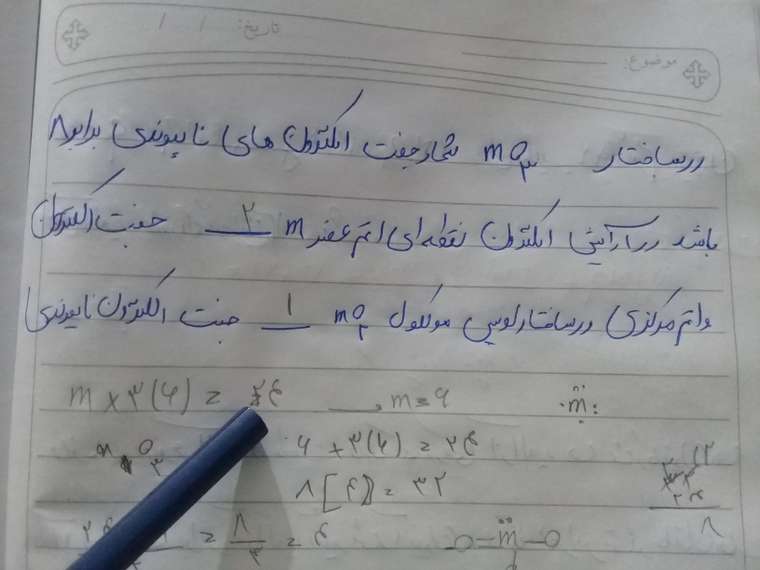 تاریخ: / /
موضوع:
در ساختار mo۳ شمار جفت الکترون های ناپیوندی برابر ۸
باشد در آرایش الکترون نقطه ای اتم عنصر m ۲ جفت الکترون
و اتم مرکزی در ساختار لوویس مولکول mo۲ ۱ جفت الکترون ناپیوندی
m × ۳(۶) = ۲۴ → m = ۶ m
۶ + ۳(۶) = ۲۴
۸[۴] = ۳۲
۸
= ۸/۳ = ۴ o-m-o